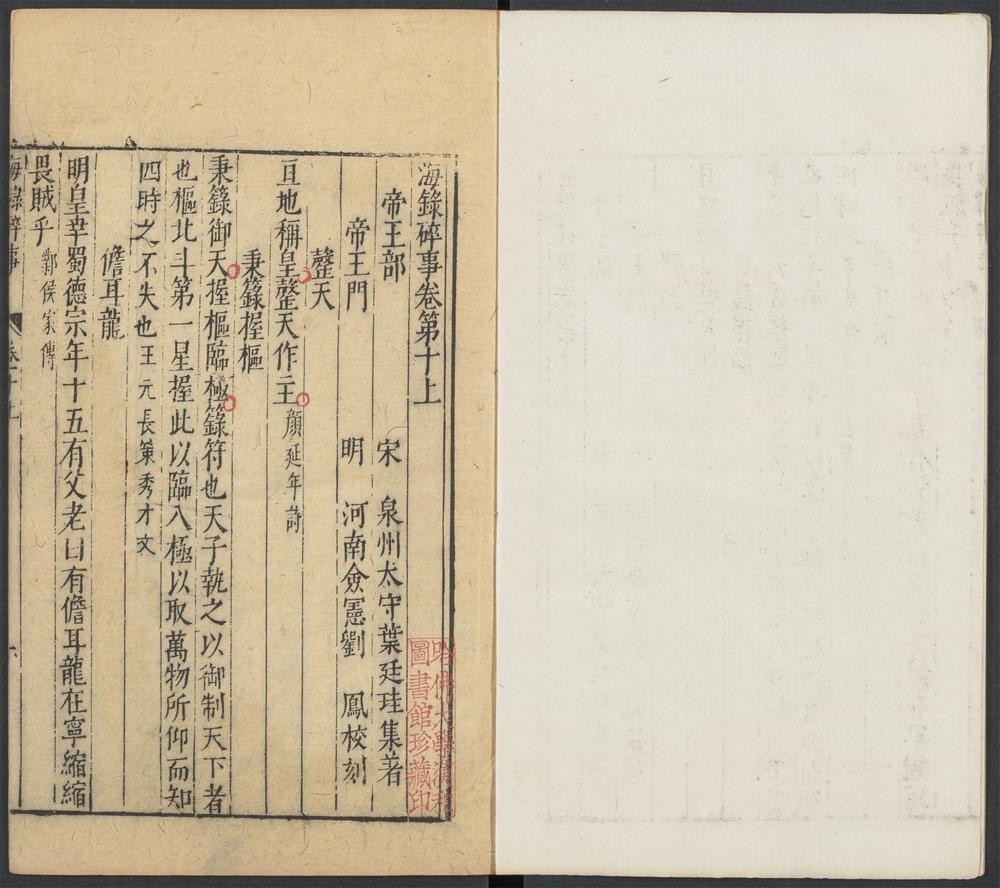 海錄碎事卷第十上
帝王部 宋 泉州太守葉廷珪集著
帝王門 明 河南僉憲劉 鳳校刻
罄天
亘地稱皇罄天作主 顔延年詩
秉籙握樞
秉籙御天握樞臨極籙符也天子執之以御制天下者
也樞北斗第一星握此以臨八極以取萬物所仰而知
四時之不失也 王元長策秀才文
儋耳龍
明皇幸蜀德宗年十五有父老曰有儋耳龍在寧縮縮
畏賊乎 鄴侯家傳
海錄碎事 卷十上
哈佛大學漢和
圖書館珍藏印